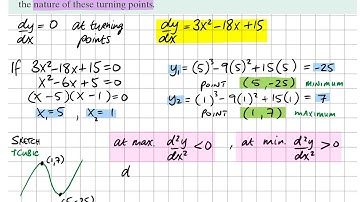 the nature of these turning points.
dy/dx = 0 at turning points
dy/dx = 3x² - 18x + 15
If 3x² - 18x + 15 = 0
x² - 6x + 5 = 0
(x - 5)(x - 1) = 0
x₁ = 5, x₂ = 1
y₁ = (5)³ - 9(5)² + 15(5) = -25
POINT (5, -25) MINIMUM
y₂ = (1)³ - 9(1)² + 15(1) = 7
POINT (1, 7) MAXIMUM
SKETCH
+CUBIC
(1,7)
(5,-25)
at max. d²y/dx² < 0 , at min. d²y/dx² > 0
d